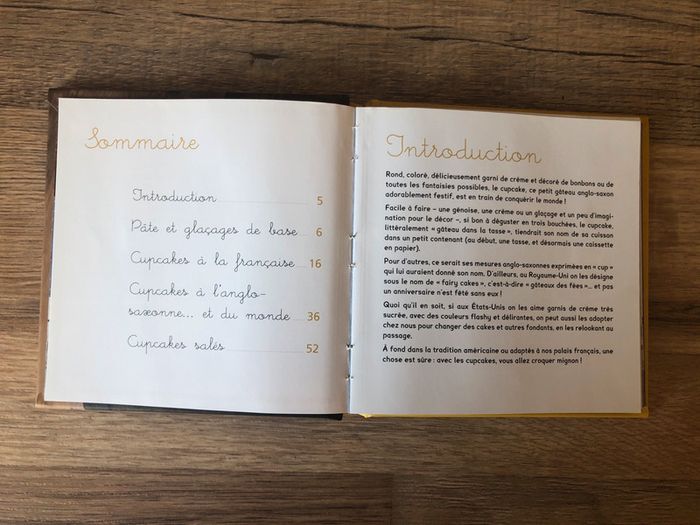 Sommaire
Introduction 5
Pâte et glaçages de base 6
Cupcakes à la française 16
Cupcakes à l'anglo-
saxonne... et du monde 36
Cupcakes salés 52
Introduction
Rond, coloré, délicieusement garni de crème et décoré de bonbons ou de
toutes les fantaisies possibles, le cupcake, ce petit gâteau anglo-saxon
adorablement festif, est en train de conquérir le monde !
Facile à faire – une génoise, une crème ou un glaçage et un peu d'imagi-
nation pour le décor –, si bon à déguster en trois bouchées, le cupcake,
littéralement « gâteau dans la tasse », tiendrait son nom de sa cuisson
dans un petit contenant (au début, une tasse, et désormais une caissette
en papier).
Pour d'autres, ce serait ses mesures anglo-saxonnes exprimées en « cup »
qui lui auraient donné son nom. D'ailleurs, au Royaume-Uni on les désigne
sous le nom de « fairy cakes », c'est-à-dire « gâteaux des fées »... et pas
un anniversaire n'est fêté sans eux !
Quoi qu'il en soit, si aux États-Unis on les aime garnis de crème très
sucrée, avec des couleurs flashy et délirantes, on peut aussi les adopter
chez nous pour changer des cakes et autres fondants, en les relookant au
passage.
À fond dans la tradition américaine ou adaptés à nos palais français, une
chose est sûre : avec les cupcakes, vous allez croquer mignon !